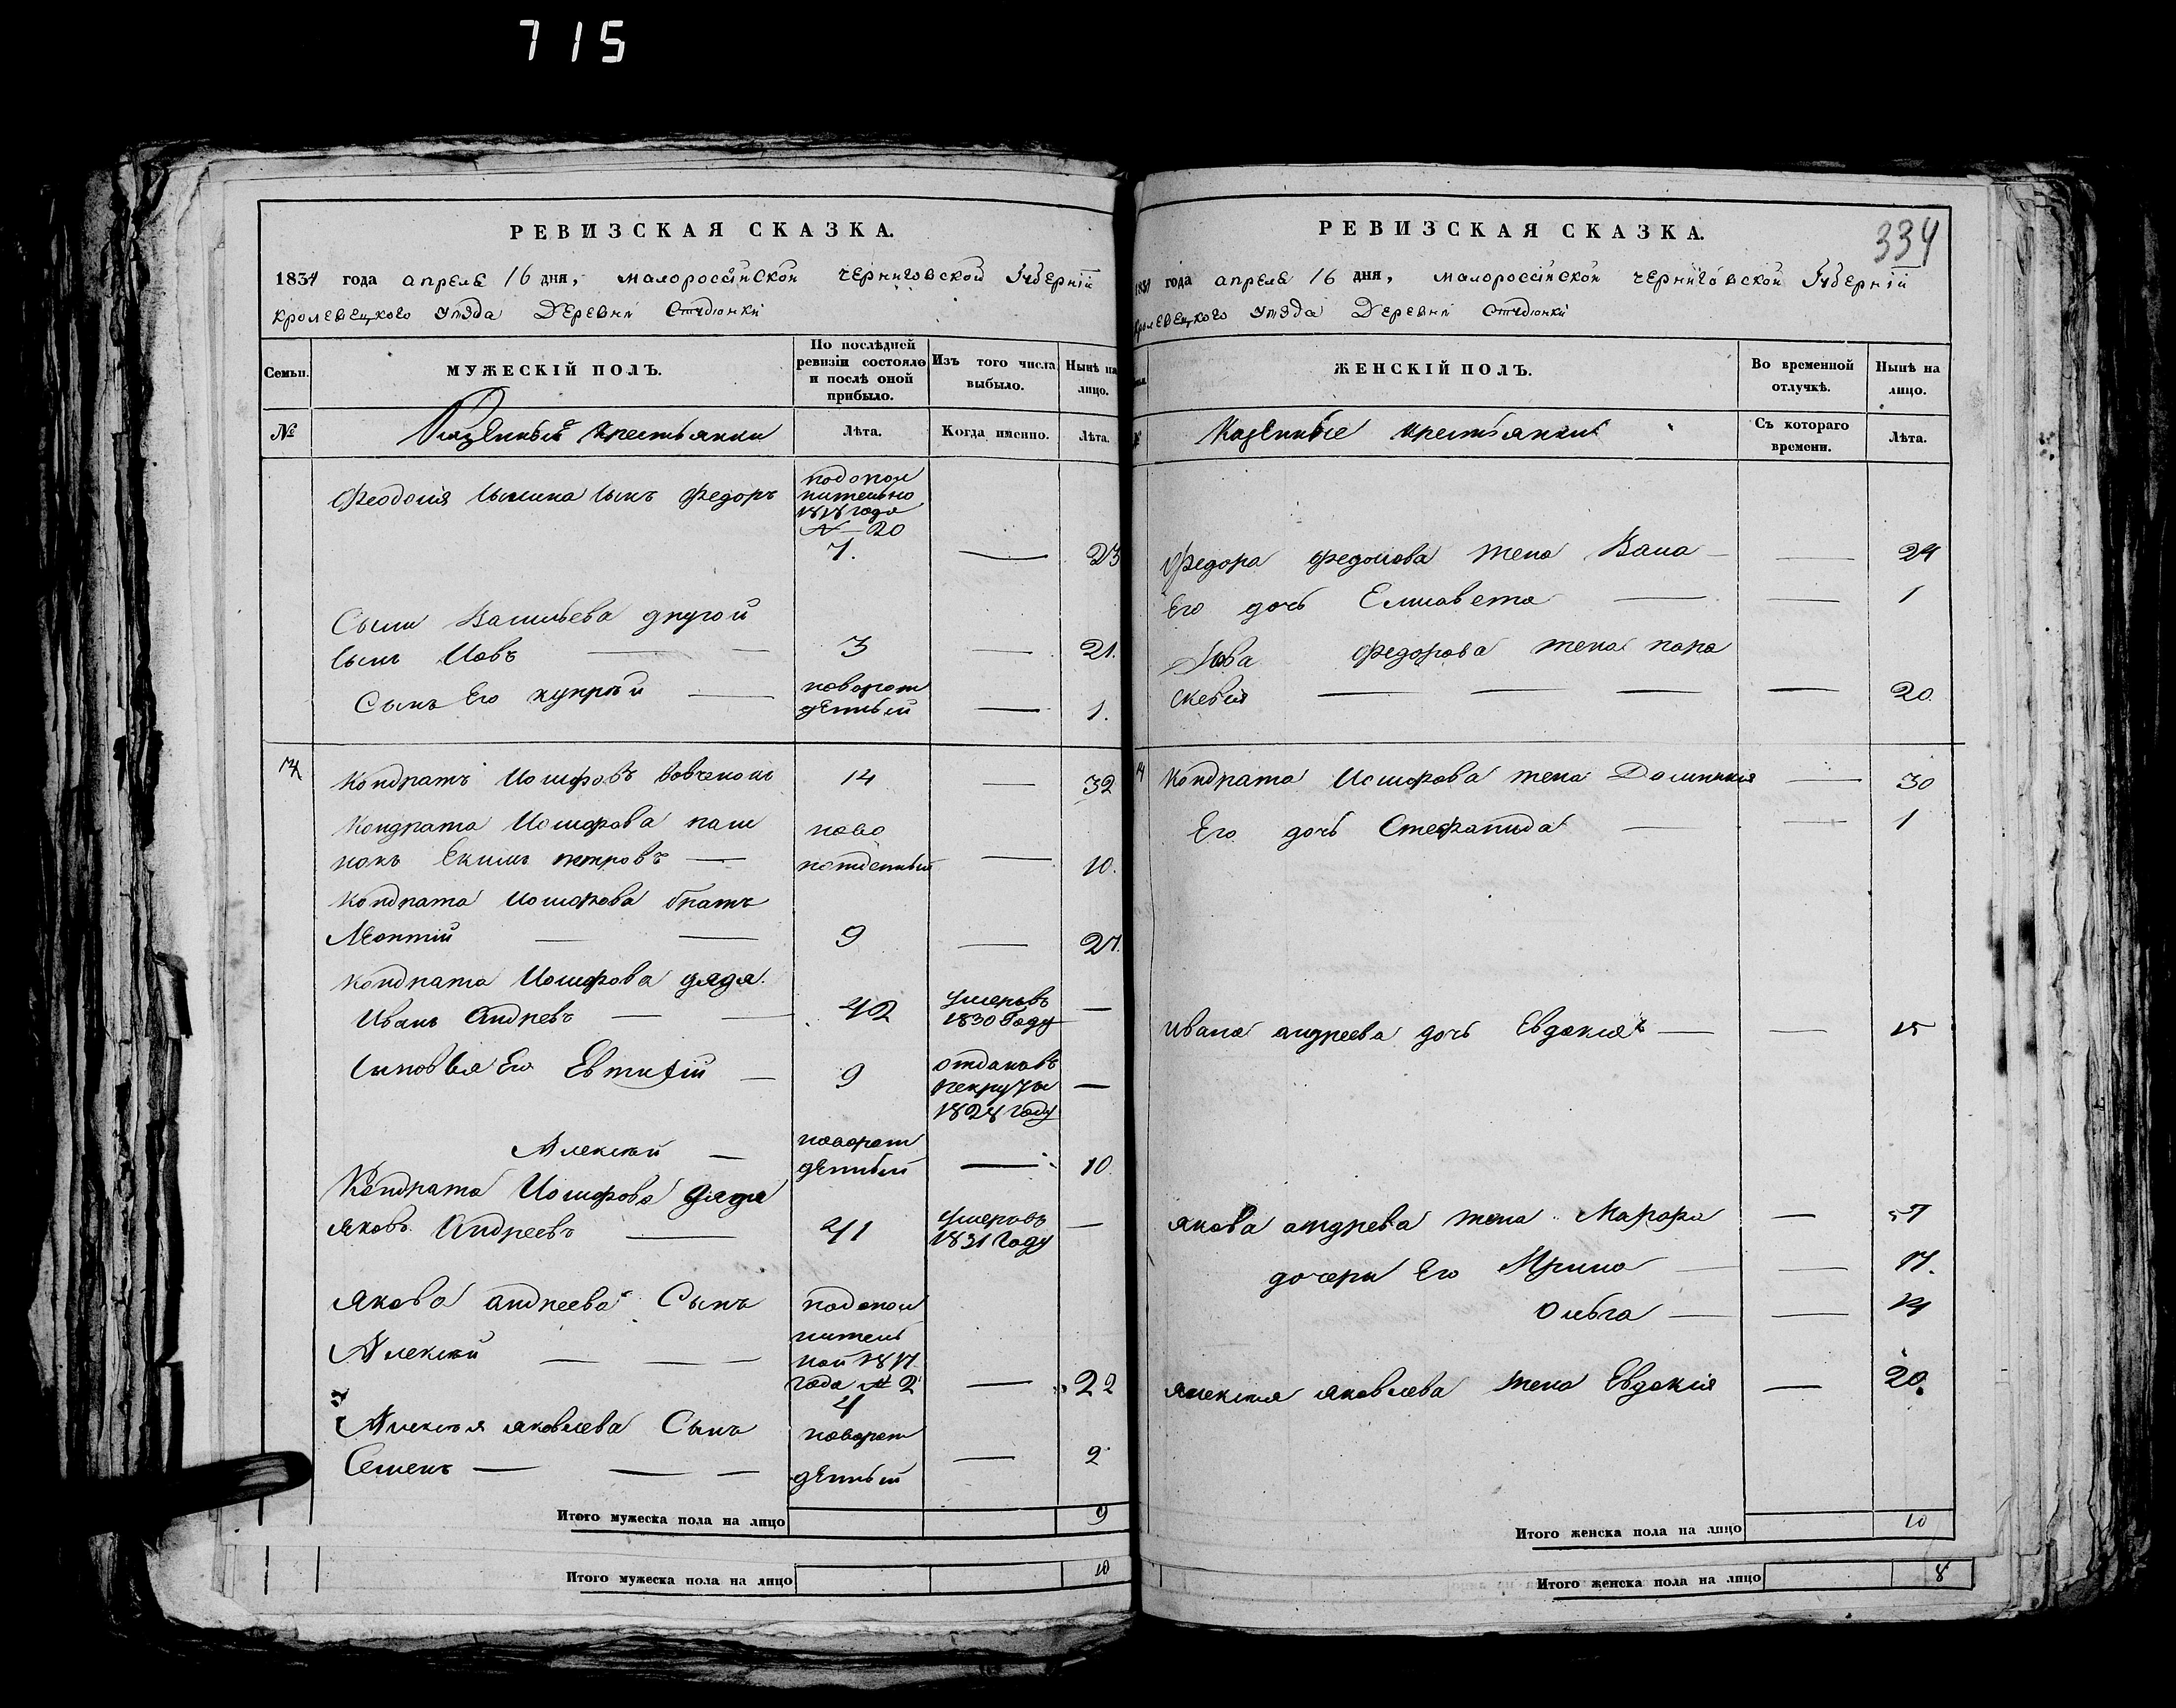 715
РЕВИЗСКАЯ СКАЗКА.
1834 года апреля 16 дня, малороссійской черниговской Губерніи
кролевецкого уѣзда Деревни Студюнки
Семьи.
МУЖЕСКІЙ ПОЛЪ.
По послѣдней ревизіи состояло и послѣ оной прибыло.
Изъ того числа выбыло.
Нынѣ на лицо.
№
Казенный крестьянки
Лѣта.
Когда именно.
Лѣта.
Феодосия сынина сынъ Федоръ
подопол
нительно
1818 года
№ 20
7.
23
Сыни Васильева другой
сынъ Иовъ 3 21.
Сынъ Его купрѣй
новорож
денный 1.
14
Кондратъ Иосифовъ вовченокъ 14 32
Кондрата Иосифова паси
нокъ Екимъ петровъ
ново
рожденный 10.
Кондрата Иосифова братъ
Леонтий 9 27.
Кондрата Иосифова дядя
Иванъ Андревъ 42
умеръвъ
1830 Году
сыновья Его Евтифій 9
отданъвъ
рекруты
1828 году
Алексѣй
новорож
денный 10.
Кондрата Иосифова дядя
яковъ Андреевъ 41
умеръвъ
1831 Году
Якова андреева Сынъ
Алексѣй
подопол
нитель
ной 1817
года № 2
4
22
Алексѣя яковлева Сынъ
Семенъ
новорож
денный 2
Итого мужеска пола на лицо 9
Итого мужеска пола на лицо 10
334
РЕВИЗСКАЯ СКАЗКА.
1834 года апреля 16 дня, малороссійской черниговской Губерніи
кролевецкого уѣзда Деревни Студюнки
ЖЕНСКІЙ ПОЛЪ.
Во временной отлучкѣ.
Нынѣ на лицо.
Казенные крестьянки
Съ котораго времени.
Лѣта.
Федора федосова жена Васа 24
Его дочь Елисавета 1
Иова федорова жена пара
скевия 20.
14
Кондрата Иосифова жена Домникия 30
Его дочь Стефанида 1
Ивана андреева дочь Евдокия 15
якова андрева жена Марфра 57
дочери Его Ирина 17.
Ольга 14
алексѣя яковлева жена Евдокия 20.
Итого женска пола на лицо 10
Итого женска пола на лицо 8